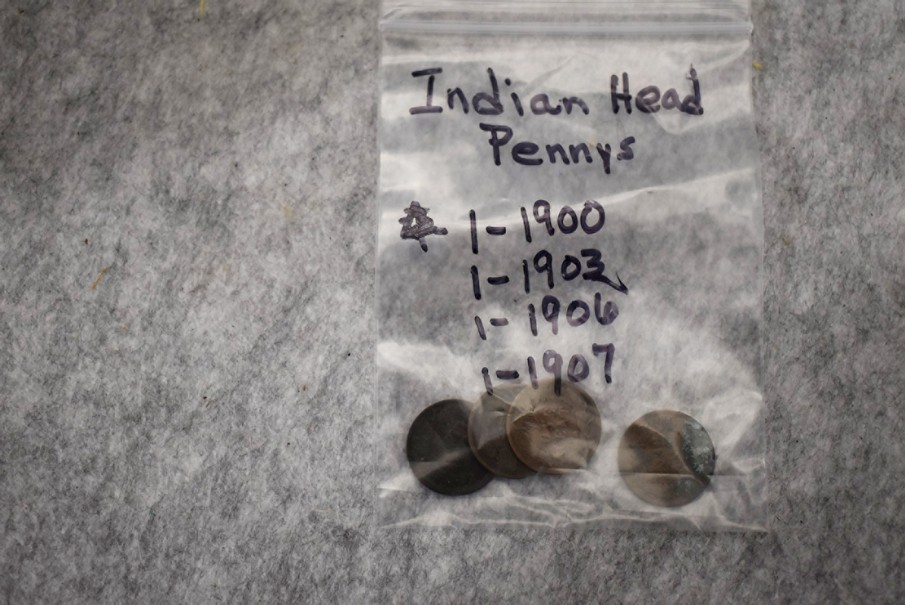 Indian Head
Pennys
1-1900
1-1903
1-1906
1-1907